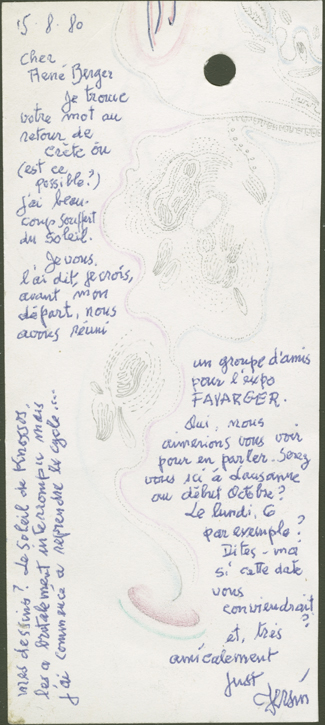 15.8.80
Cher
René Berger
Je trouve
votre mot au
retour de
Crète où
(est ce
possible?)
j'ai beau-
coup souffert
du soleil.
Je vous
l'ai dit, je crois,
avant mon
départ, nous
avons réuni
un groupe d'amis
pour l'expo
FAVARGER.
Oui, nous
aimerions vous voir
pour en parler. Serez
vous ici à Lausanne
au début Octobre?
Le lundi, 6
par exemple?
Dites-moi
si cette date
vous
conviendrait
?
et, très
amicalement
Just
mes dessins? Le Soleil de Knossos,
les a brutalement interrompu mais
j'ai commencé a reprendre le cycle...